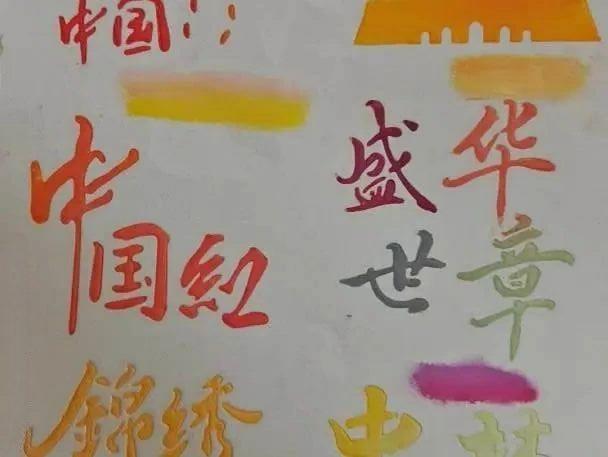 中国
中国红
盛世
华章
锦绣
中